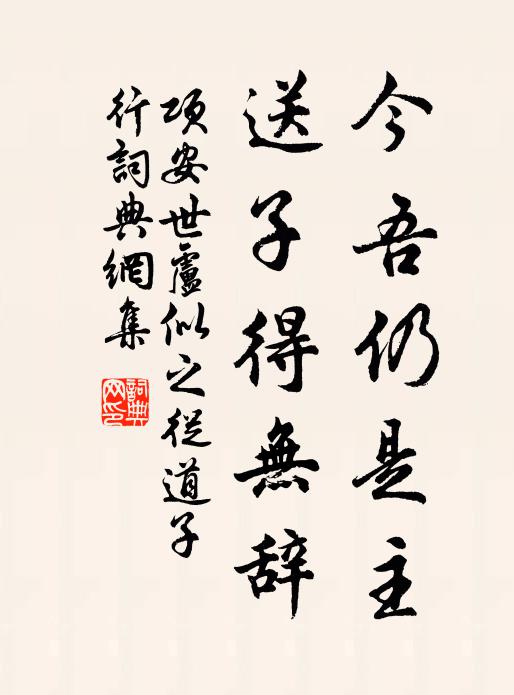 今吾仍是主
送子得無辞
項安世盧似之從道子
行詞典網集
詞典网印